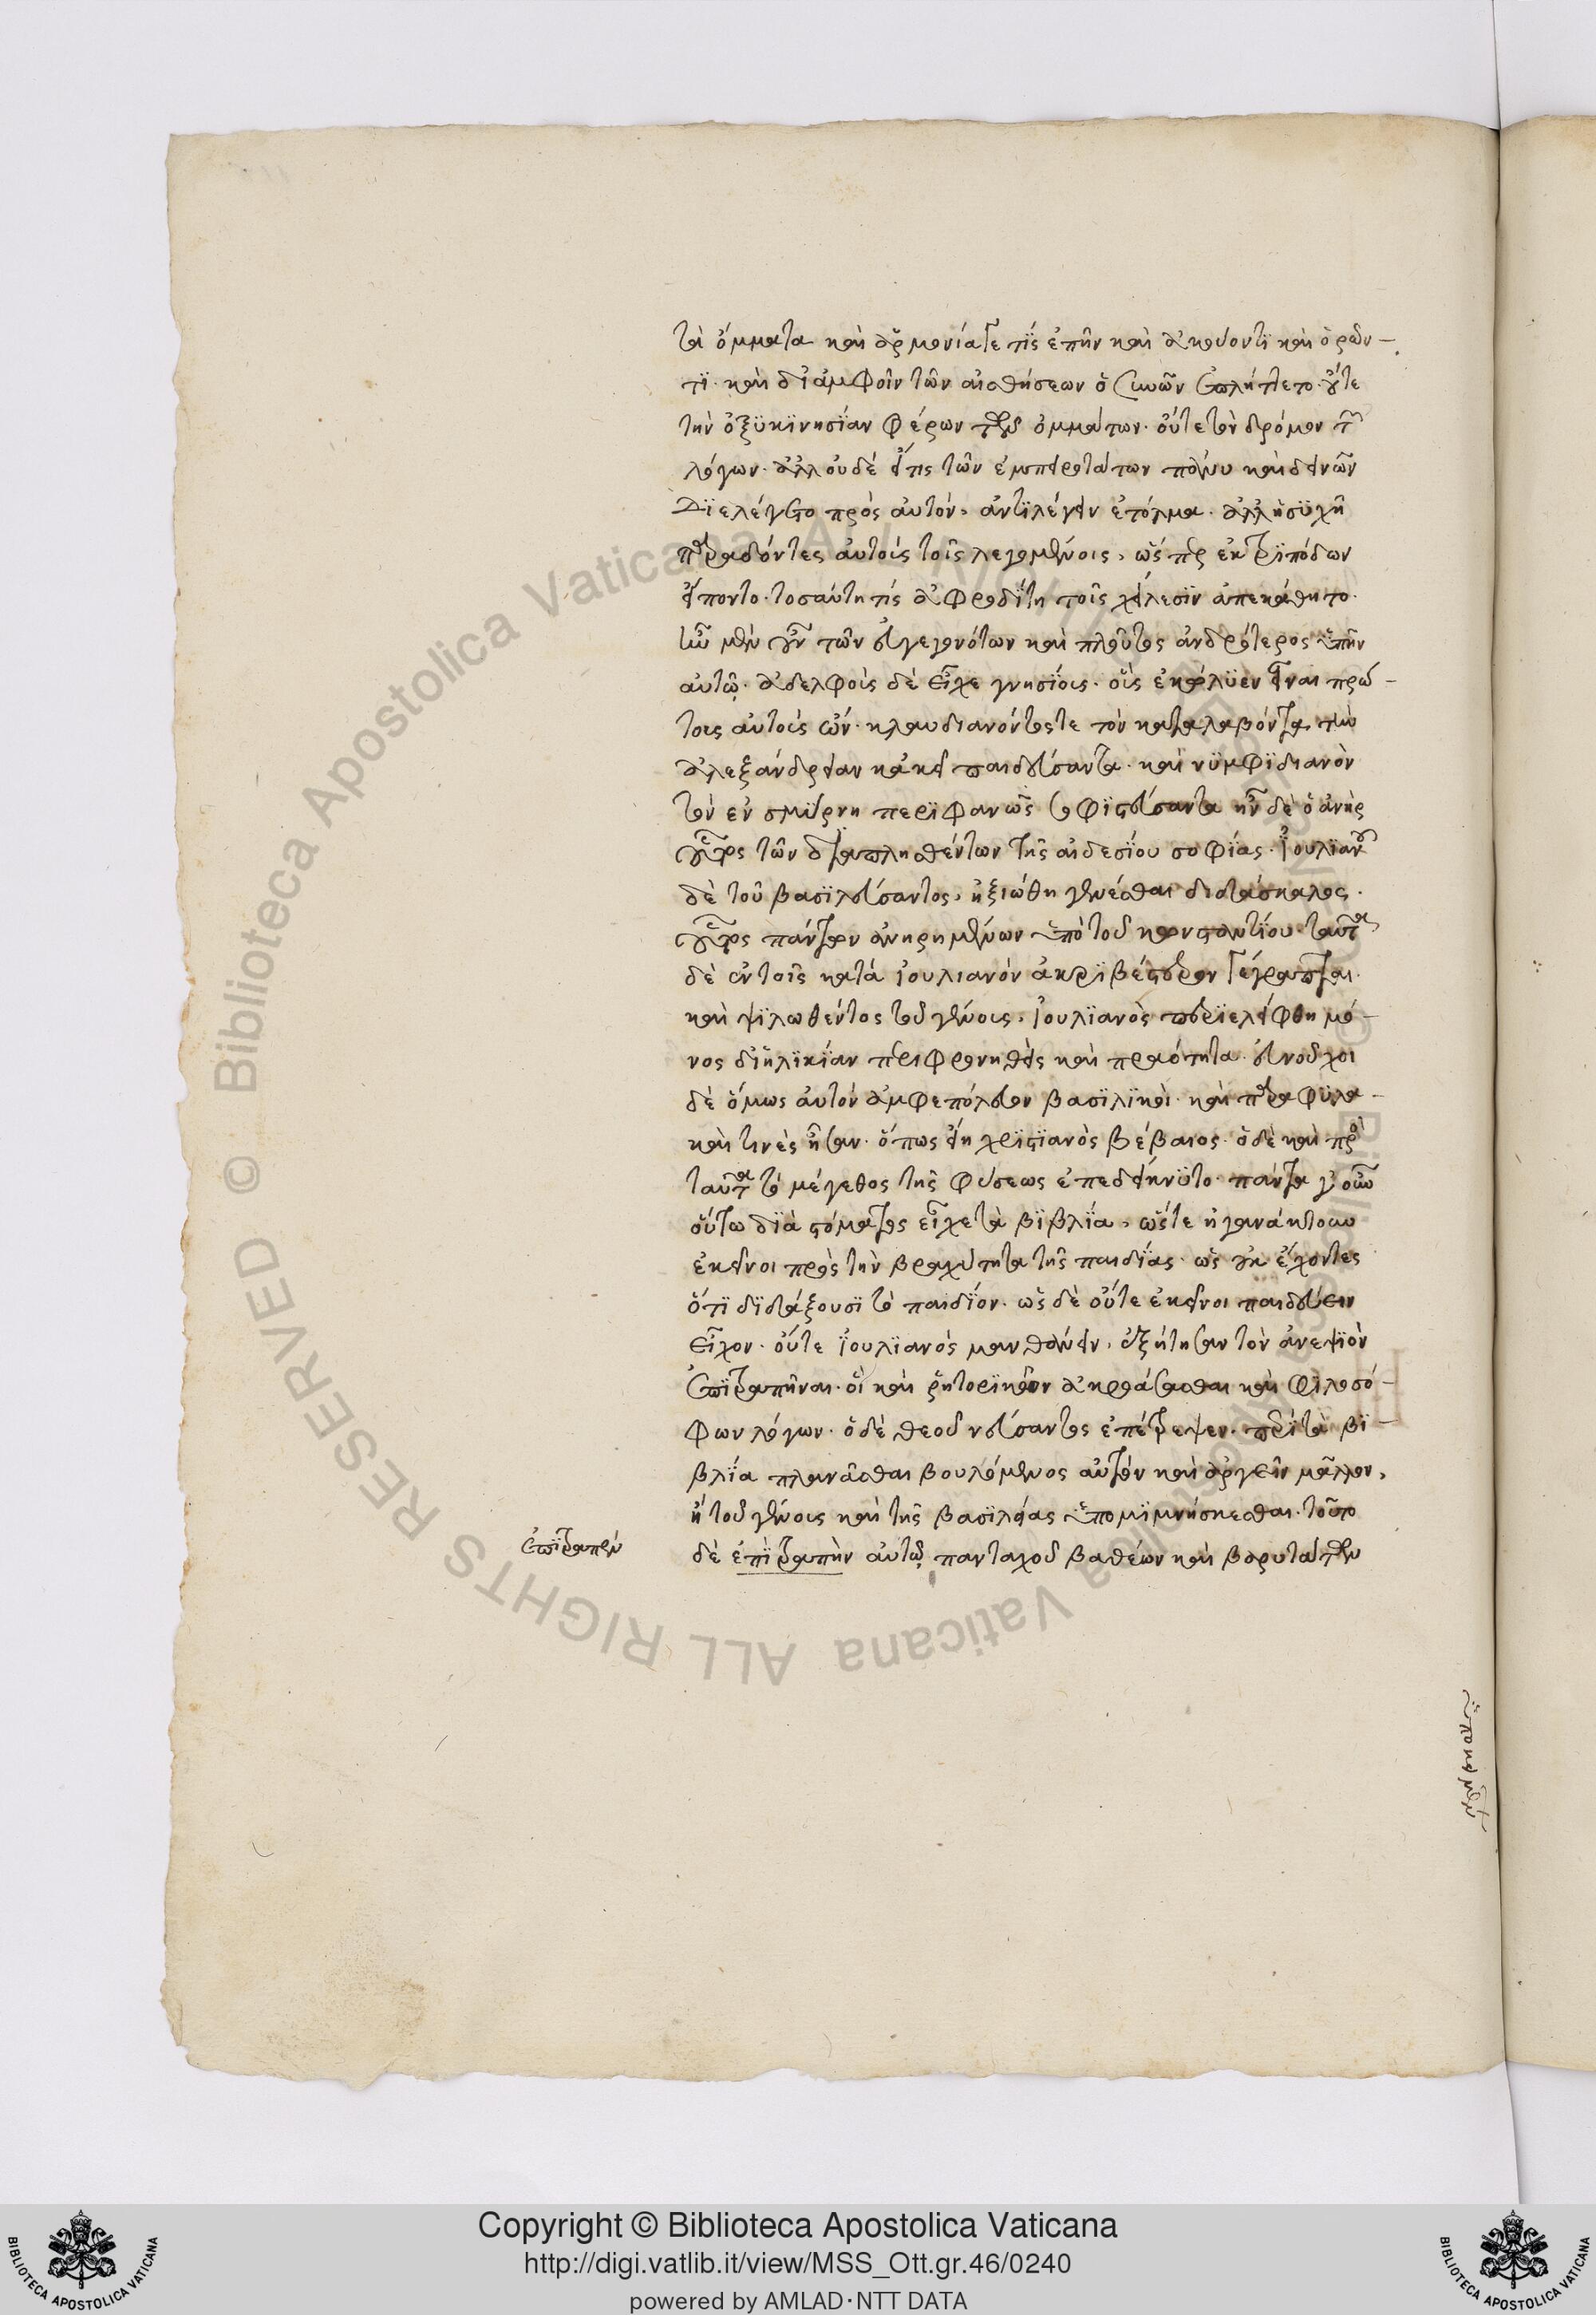 τὰ ὄμματα καὶ ἁρμονία τε τίς ἐπῆν καὶ ἀκούοντϊ καὶ ὁρῶν-
τϊ. καὶ δι' ἀμφοῖν τῶν αἰσθήσεων ὁ συνὼν ἐπλήττετο. οὔτε
τὴν ὀξϋκϊνησΐαν φέρων τῶν ὀμμάτων. οὔτε τὸν δρόμον τῶν
λόγων. ἀλλ' οὐδέ εἴ τις τῶν ἐμπειροτάτων πάνυ καὶ δεινῶν
Δϊελέγετο πρὸς αὐτόν, ἀντϊλέγειν ἐτόλμα. ἀλλ' ἡσϋχῆ
παραδόντες αὑτοὺς τοῖς λεγομένοις, ὥσπερ ἐκ τρϊπόδων
εἵποντο. τοσαύτη τίς ἀφροδΐτη τοῖς χείλεσϊν ἀπεκάθητο.
τῶν μὲν οὖν τῶν εὖ γεγονότων καὶ πλοῦτος ἁνδρότερος ὑπῆν
αὐτῷ. ἀδελφοὺς δὲ εἶχε γνησΐους. οὓς ἐκώλϋεν εἶναι πρώ-
τους αὐτοὺς ὤν. κλαυδιανόν τε τὸν καταλαβόντα τὴν
ἀλεξάνδρειαν κἀκεῖ παιδεύσαντα. καὶ νϋμφϊδιανὸν
τὸν ἐν σμύρνῃ περϊφανῶς σοφϊστεύσαντα ἦν δὲ ὁ ἀνὴρ
οὗτος τῶν διαπλησθέντων τῆς αἰδεσΐου σοφίας. Ἰουλϊανοῦ
δὲ τοῦ βασϊλεύσαντος, ἠξιώθη γενέσθαι διδάσκαλος.
οὗτος πάντων ἀνῃρημένων ὑπὸ τοῦ κωνσταντΐου. ταῦτα
δὲ ἐν τοῖς κατὰ ἰουλιανὸν ἀκρϊβέστερον Γέγραπται.
καὶ ψϊλωθέντος τοῦ γένους, ἰουλϊανὸς περϊελείφθη μό-
νος δι' ἡλϊκΐαν περιφρονηθεὶς καὶ πραότητα. εὐνοῦχοι
δὲ ὅμως αὐτὸν ἀμφεπόλευον βασϊλϊκοὶ. καὶ παραφϋλα-
καὶ τινὲς ἦσαν. ὅπως εἴη χρϊστϊανὸς βέβαιος. ὁ δὲ καὶ πρὸς
ταῦτα τὸ μέγεθος τῆς φύσεως ἐπεδείκνϋτο. πάντα γοῦν
οὕτω δϊὰ στόματος εἶχε τὰ βϊβλΐα, ὥστε ἠγανάκτουν
ἐκεῖνοι πρὸς τὴν βραχύτητα τῆς παιδΐας. ὡς οὐκ ἔχοντες
ὅτϊ δϊδάξουσϊ τὸ παιδΐον. ὡς δὲ οὔτε ἐκεῖνοι παιδεύειν
εἶχον. οὔτε ἰουλϊανὸς μανθάνειν, ἐξῄτησαν τὸν ἀνεψϊὸν
ἐπϊτραπῆναι. οἱ καὶ ῥητορϊκῶν ἀκροάσασθαι καὶ φϊλοσό-
φων λόγων. ὁ δὲ θεοῦ νεύσαντος ἐπέτρεψεν. περὶ τὰ βϊ-
βλΐα πλανᾶσθαι βουλόμενος αὐτὸν καὶ ἀργεῖν μᾶλλον,
ἢ τοῦ γένους καὶ τῆς βασϊλείας ὑπομϊμνήσκεσθαι. τοῦτο
δὲ ἐπϊτραπὴν αὐτῷ πανταχοῦ βαθέων καὶ βαρυτάτων
ἐπϊτραπὲν
Copyright © Biblioteca Apostolica Vaticana
http://digi.vatlib.it/view/MSS_Ott.gr.46/0240
powered by AMLAD·NTT DATA
© Biblioteca Apostolica Vaticana ALL RIGHTS RESERVED
BIBLIOTECA APOSTOLICA VATICANA
BIBLIOTECA APOSTOLICA VATICANA